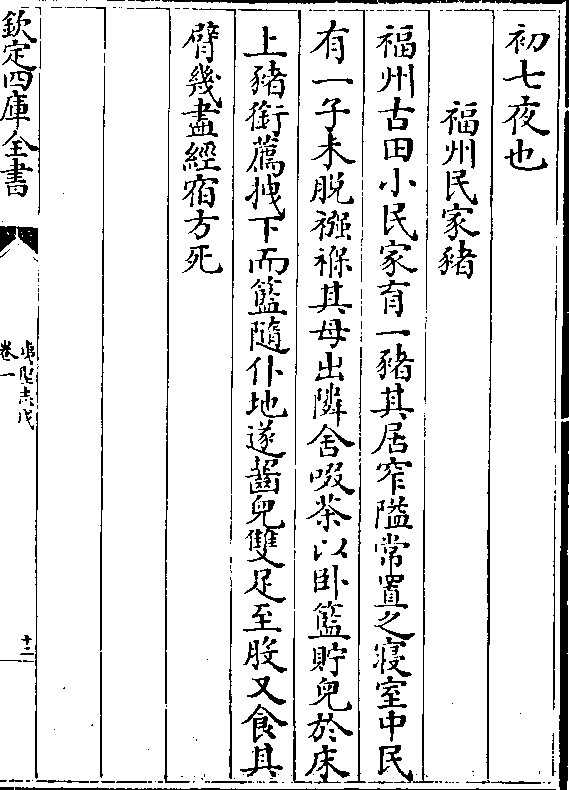 初七夜也
福州民家豬
福州古田小民家有一豬其居窄隘常置之寢室中民
有一子未脫襁褓其母出隣舍啜茶以卧籃貯兒於床
上豬銜薦拽下而籃隨仆地遂齧兒雙足至股又食其
臂幾盡經宿方死
欽定四庫全書
夷堅志戊
卷一
十二